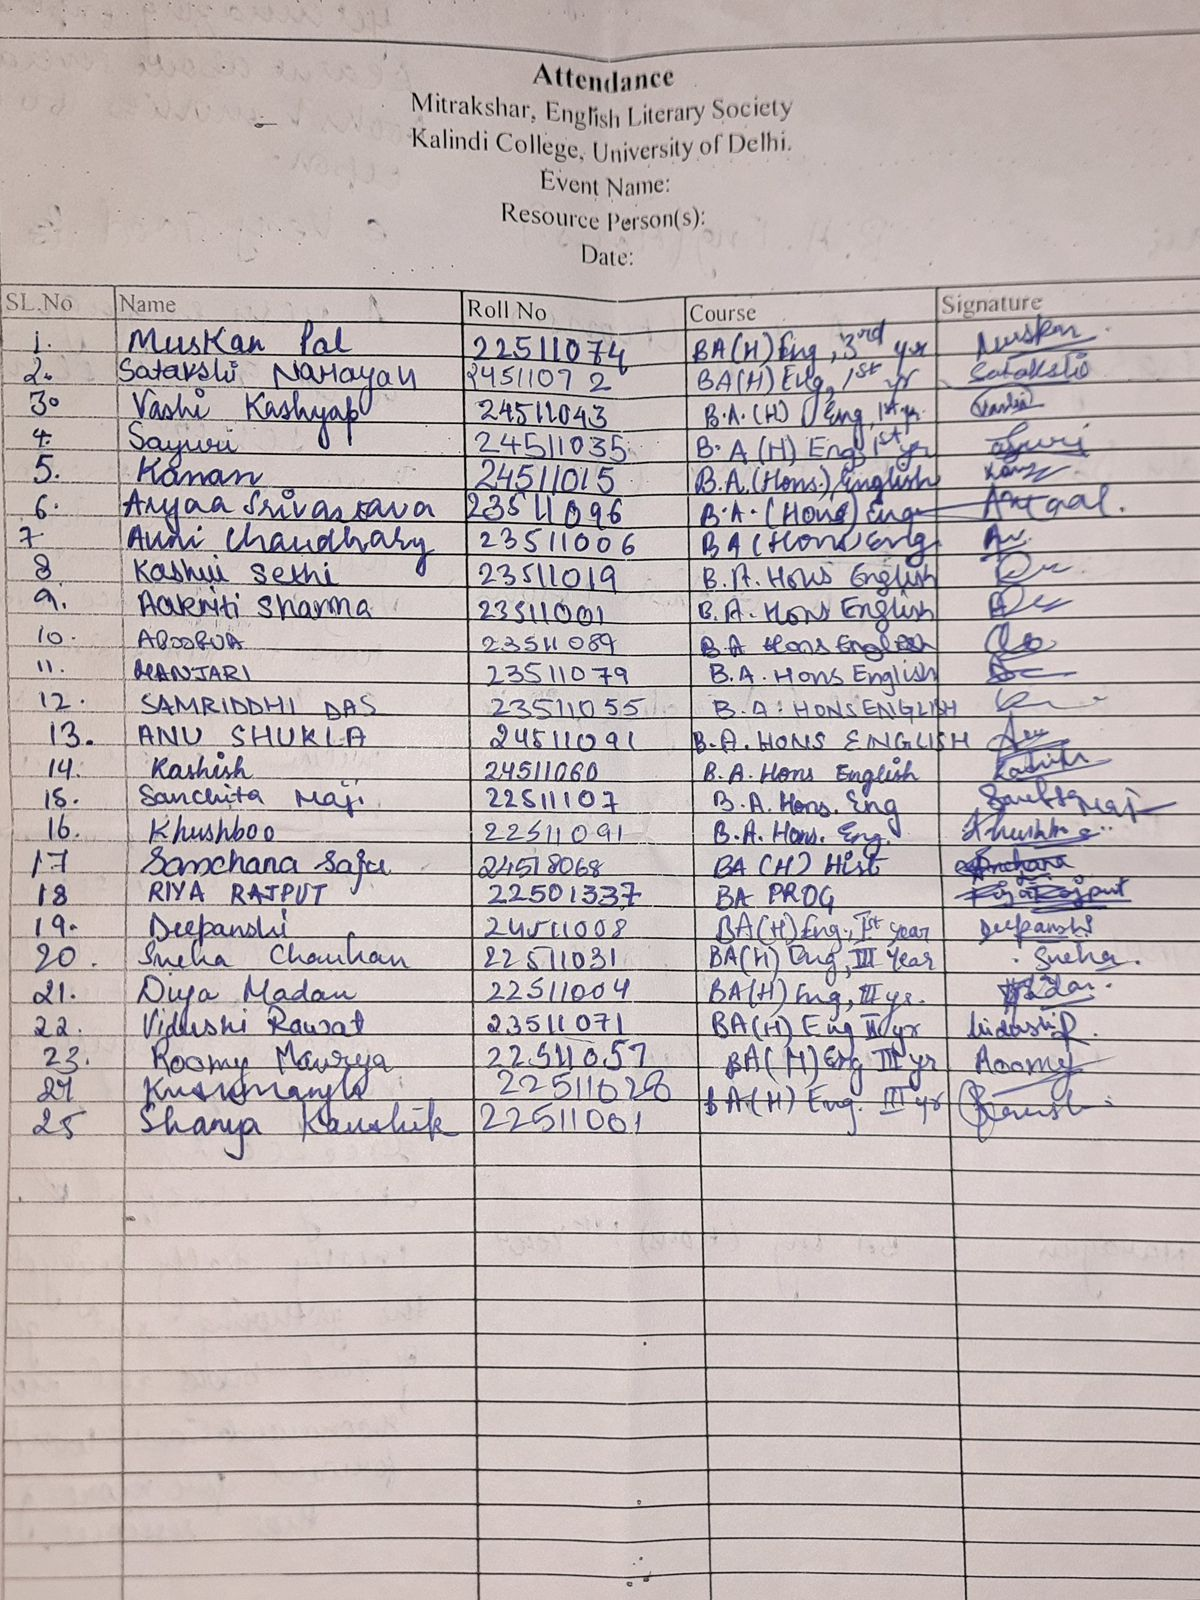 Attendance
Mitrakshar, English Literary Society
Kalindi College, University of Delhi.
Event Name:
Resource Person(s):
Date:
SL.No Name Roll No Course Signature
1. Muskan Pal 22511074 BA(H) Eng, 3rd yr Muskan
2. Satakshi Narayan 24511072 BA(H) Eng, 1st yr Satakshi
3. Vashi Kashyap 24511043 B.A.(H) Eng, 1st yr. Vashi
4. Sayuri 24511035 B.A(H) Eng, 1st yr Sayuri
5. Kanan 24511015 B.A.(Hons.) English
6. Aryaa Srivastava 23511096 B.A.(Hons) Eng
7 Avni Chaudhary 23511006 BA(Hons) Eng
8 Kashvi Sethi 23511019 B.A. Hons English
9. Aakriti Sharma 23511001 B.A. Hons English
10. APOORVA 23511089 BA Hons English
11. MANJARI 23511079 B.A. Hons English
12. SAMRIDDHI DAS 23511055 B.A. HONS ENGLISH
13. ANU SHUKLA 24511091 B.A. HONS ENGLISH
14. Kashish 24511060 B.A. Hons English Kashish
15. Sanchita Maji 22511107 B.A. Hons. Eng
16. Khushboo 22511091 B.A. Hons. Eng. Khushboo
17 Samchana Saju 24518068 BA (H) Hist
18 RIYA RAJPUT 22501337 BA PROG Riya Rajput
19. Deepanshi 24511008 BA(H) Eng., Ist year Deepanshi
20. Sneha Chauhan 22511031 BA(H) Eng, III Year Sneha.
21. Diya Madan 22511004 BA(H) Eng, III yr.
22. Vidushi Rawat 23511071 BA(H) Eng II yr
23. Roomy Maurya 22511057 BA(H) Eng III yr Roomy
24 22511028 BA(H) Eng. III yr
25 Shanya Kaushik 22511001